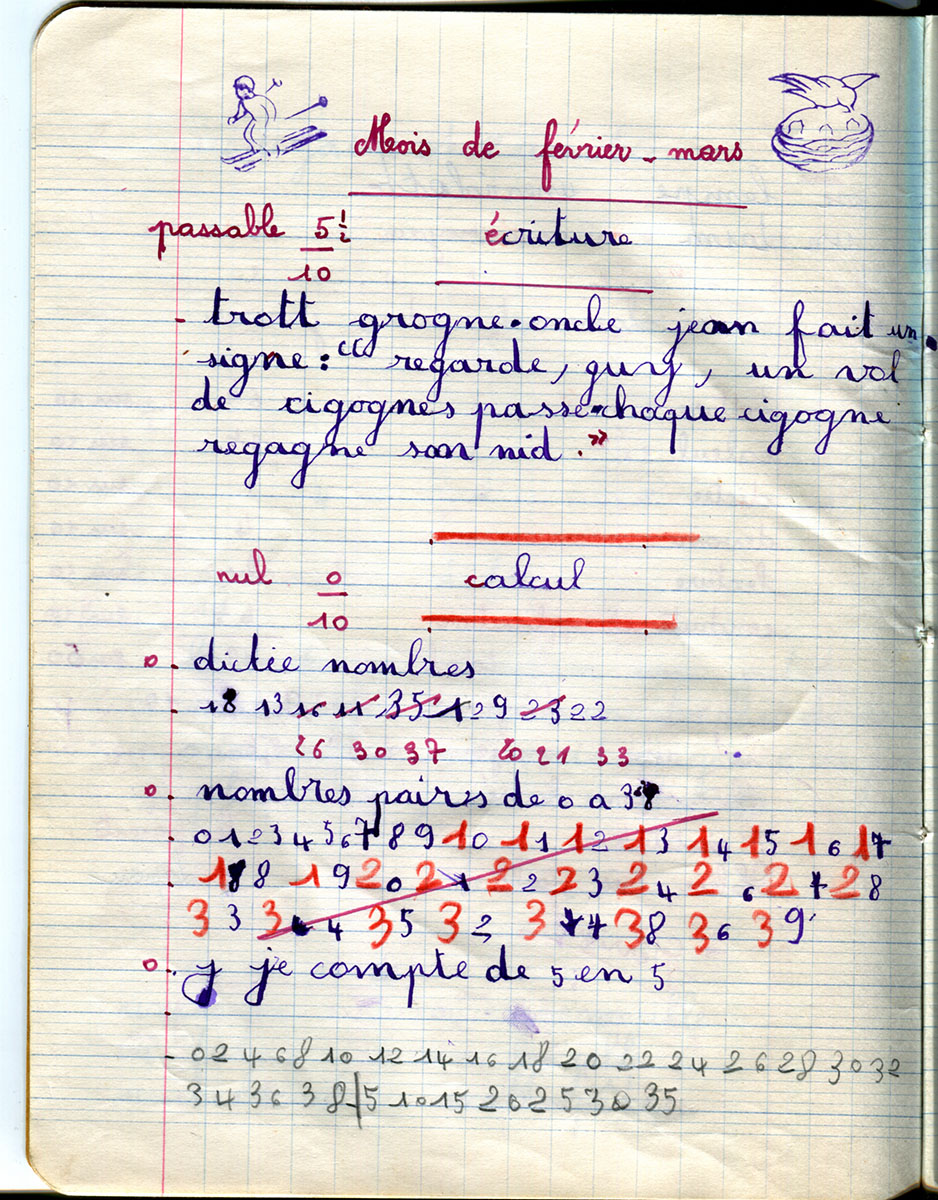 Mois de février - mars
passable 5 ½/10 écriture
- trott grogne. oncle jean fait un
signe : " regarde, guy, un vol
de cigognes passe. chaque cigogne
regagne son nid . "
nul 0/10 calcul
0 . dictée nombres
. 18 13 16 11 35 12 9 23 22
26 30 37 20 21 33
0 . nombres paires de 0 a 38
. 0 1 2 3 4 5 6 7 8 9 10 11 12 13 14 15 16 17
. 18 8 19 20 21 22 23 24 2 6 27 28
33 3 4 35 32 3 7 38 36 39
0 . y je compte de 5 en 5
- 0 2 4 6 8 10 12 14 16 18 20 22 24 26 28 30 32
34 36 38 | 5 10 15 20 25 30 35